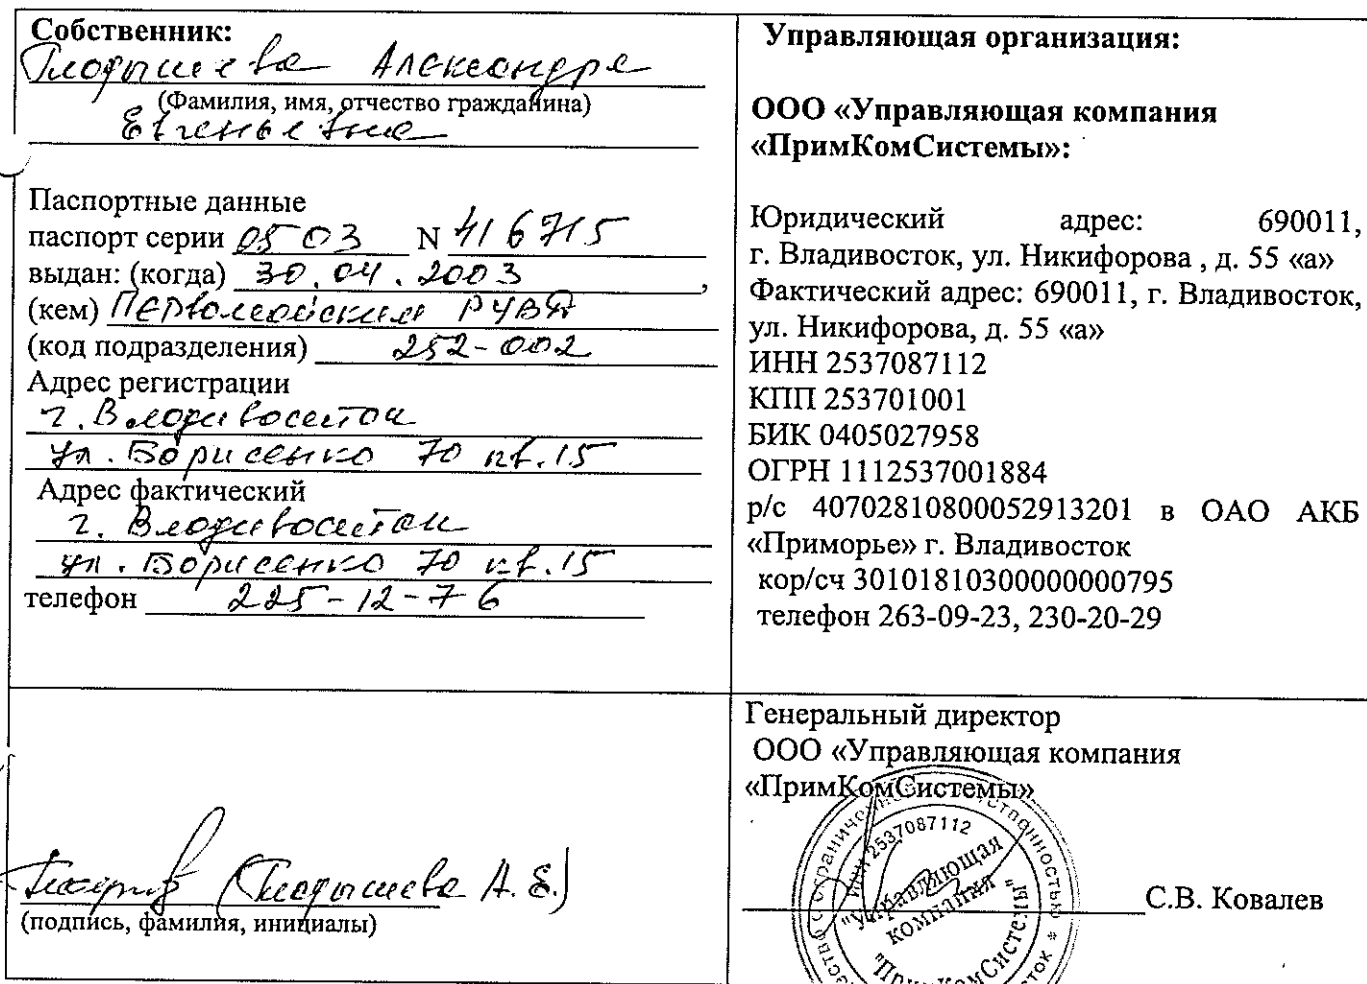 Собственник:
Гладышева Александра
(Фамилия, имя, отчество гражданина)
Евгеньевна
Паспортные данные
паспорт серии 0503 N 416715
выдан: (когда) 30.04.2003,
(кем) Первомайским РУВД
(код подразделения) 252-002
Адрес регистрации
г. Владивосток
ул. Борисенко 70 кв.15
Адрес фактический
г. Владивосток
ул. Борисенко 70 кв.15
телефон 225-12-76
(Гладышева А.Е.)
(подпись, фамилия, инициалы)
Управляющая организация:
ООО «Управляющая компания
«ПримКомСистемы»:
Юридический адрес: 690011,
г. Владивосток, ул. Никифорова , д. 55 «а»
Фактический адрес: 690011, г. Владивосток,
ул. Никифорова, д. 55 «а»
ИНН 2537087112
КПП 253701001
БИК 0405027958
ОГРН 1112537001884
р/с 40702810800052913201 в ОАО АКБ
«Приморье» г. Владивосток
кор/сч 30101810300000000795
телефон 263-09-23, 230-20-29
Генеральный директор
ООО «Управляющая компания
«ПримКомСистемы»
ИНН 2537087112
"Управляющая
компания
"ПримКомСистемы"
С.В. Ковалев